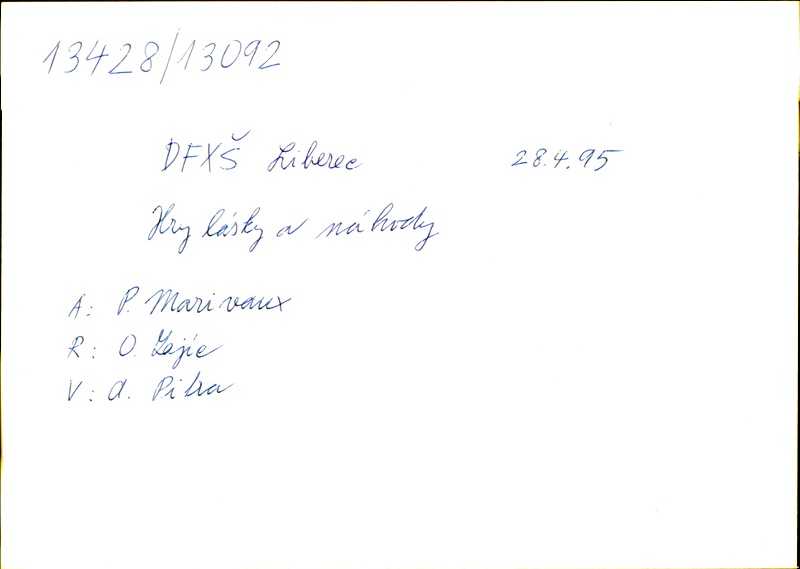 13428/13092
DFXŠ Liberec 28.4.95
Hry lásky a náhody
A: P. Marivaux
R: O. Zajíc
V: A. Pitra